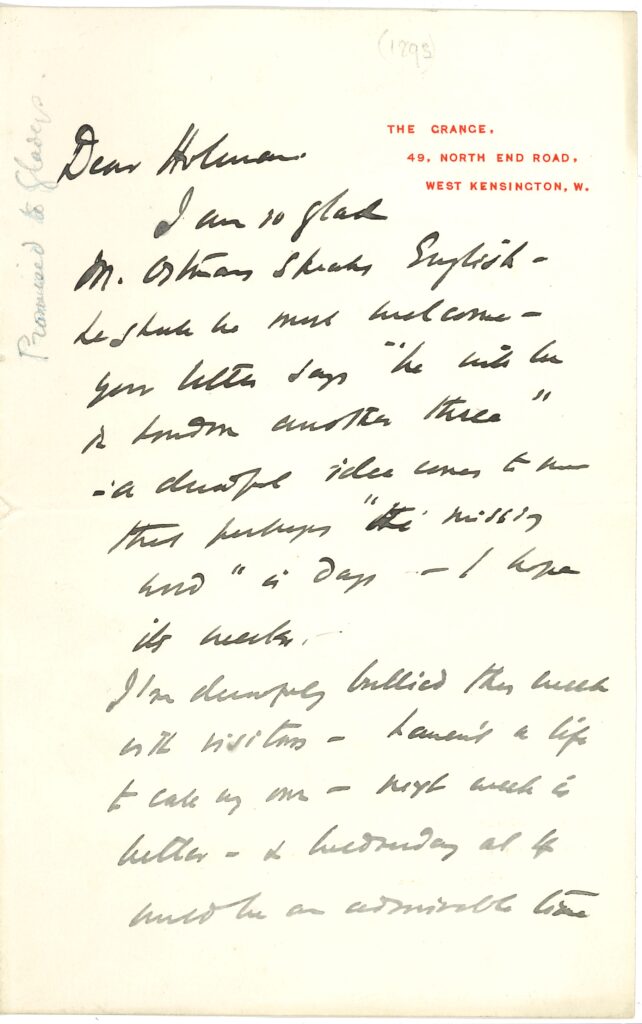 (1895)
THE GRANGE,
49, NORTH END ROAD,
WEST KENSINGTON, W.
Promised to Gladys.
Dear Holman.
I am so glad
M. Ostmans speaks English –
he shall be most welcome –
your letter says "he will be
in London another three"
– a dreadful idea comes to me
that perhaps "the missing
word" is days – I hope
its weeks.
I'm dreadfully bullied this week
with visitors – haven't a life
to call my own – next week is
better – & Wednesday at 4
would be an admirable time